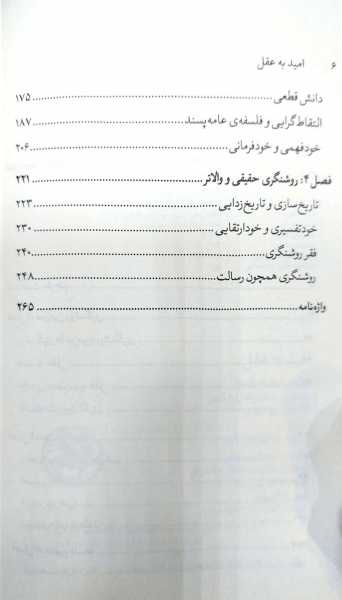 ۶ امید به عقل
دانش قطعی ۱۷۵
التقاط‌گرایی و فلسفه‌ی عامه‌پسند ۱۸۷
خودفهمی و خودفرمانی ۲۰۶
فصل ۴: روشنگری حقیقی و والاتر ۲۲۱
تاریخ‌سازی و تاریخ‌زدایی ۲۲۳
خودتفسیری و خودارتقایی ۲۳۰
فقر روشنگری ۲۴۰
روشنگری همچون رسالت ۲۴۸
واژه‌نامه ۲۶۵